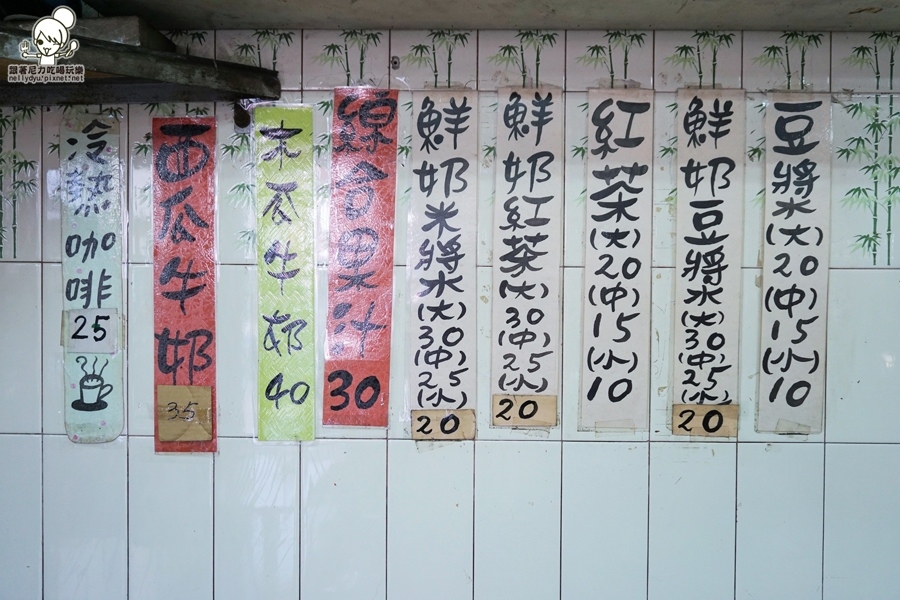 豆漿(大)20(中)15(小)10
鮮奶豆漿(大)30(中)25(小)20
紅茶(大)20(中)15(小)10
鮮奶紅茶(大)30(中)25(小)20
鮮奶米漿(大)30(中)25(小)20
綜合果汁30
木瓜牛奶40
西瓜牛奶35
冷熱咖啡25
跟著尼力吃喝玩樂
nellydyu.pixnet.net